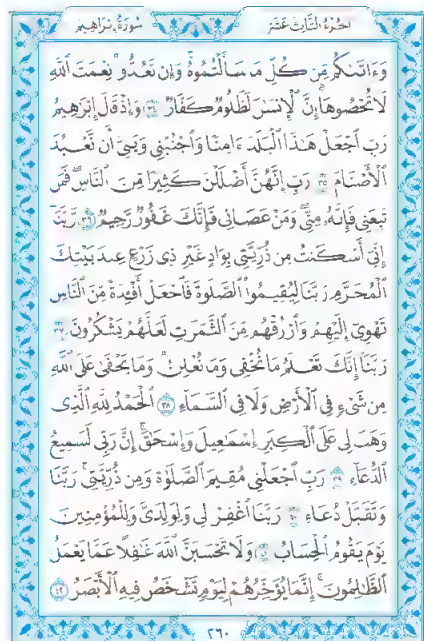 الجزء الثالث عشر
سورة إبراهيم
وَءَاتَىٰكُم مِّن كُلِّ مَا سَأَلْتُمُوهُ ۚ وَإِن تَعُدُّوا۟ نِعْمَتَ ٱللَّهِ
لَا تُحْصُوهَآ ۗ إِنَّ ٱلْإِنسَٰنَ لَظَلُومٌ كَفَّارٌ ٣٤ وَإِذْ قَالَ إِبْرَٰهِيمُ
رَبِّ ٱجْعَلْ هَٰذَا ٱلْبَلَدَ ءَامِنًا وَٱجْنُبْنِى وَبَنِىَّ أَن نَّعْبُدَ
ٱلْأَصْنَامَ ٣٥ رَبِّ إِنَّهُنَّ أَضْلَلْنَ كَثِيرًا مِّنَ ٱلنَّاسِ ۖ فَمَن
تَبِعَنِى فَإِنَّهُۥ مِنِّى ۖ وَمَنْ عَصَانِى فَإِنَّكَ غَفُورٌ رَّحِيمٌ ٣٦ رَّبَّنَآ
إِنِّىٓ أَسْكَنتُ مِن ذُرِّيَّتِى بِوَادٍ غَيْرِ ذِى زَرْعٍ عِندَ بَيْتِكَ
ٱلْمُحَرَّمِ رَبَّنَا لِيُقِيمُوا۟ ٱلصَّلَوٰةَ فَٱجْعَلْ أَفْـِٔدَةً مِّنَ ٱلنَّاسِ
تَهْوِىٓ إِلَيْهِمْ وَٱرْزُقْهُم مِّنَ ٱلثَّمَرَٰتِ لَعَلَّهُمْ يَشْكُرُونَ ٣٧
رَبَّنَآ إِنَّكَ تَعْلَمُ مَا نُخْفِى وَمَا نُعْلِنُ ۗ وَمَا يَخْفَىٰ عَلَى ٱللَّهِ
مِن شَىْءٍ فِى ٱلْأَرْضِ وَلَا فِى ٱلسَّمَآءِ ٣٨ ٱلْحَمْدُ لِلَّهِ ٱلَّذِى
وَهَبَ لِى عَلَى ٱلْكِبَرِ إِسْمَٰعِيلَ وَإِسْحَٰقَ ۚ إِنَّ رَبِّى لَسَمِيعُ
ٱلدُّعَآءِ ٣٩ رَبِّ ٱجْعَلْنِى مُقِيمَ ٱلصَّلَوٰةِ وَمِن ذُرِّيَّتِى ۚ رَبَّنَا
وَتَقَبَّلْ دُعَآءِ ٤٠ رَبَّنَا ٱغْفِرْ لِى وَلِوَٰلِدَىَّ وَلِلْمُؤْمِنِينَ
يَوْمَ يَقُومُ ٱلْحِسَابُ ٤١ وَلَا تَحْسَبَنَّ ٱللَّهَ غَٰفِلًا عَمَّا يَعْمَلُ
ٱلظَّٰلِمُونَ ۚ إِنَّمَا يُؤَخِّرُهُمْ لِيَوْمٍ تَشْخَصُ فِيهِ ٱلْأَبْصَٰرُ ٤٢
٢٦٠